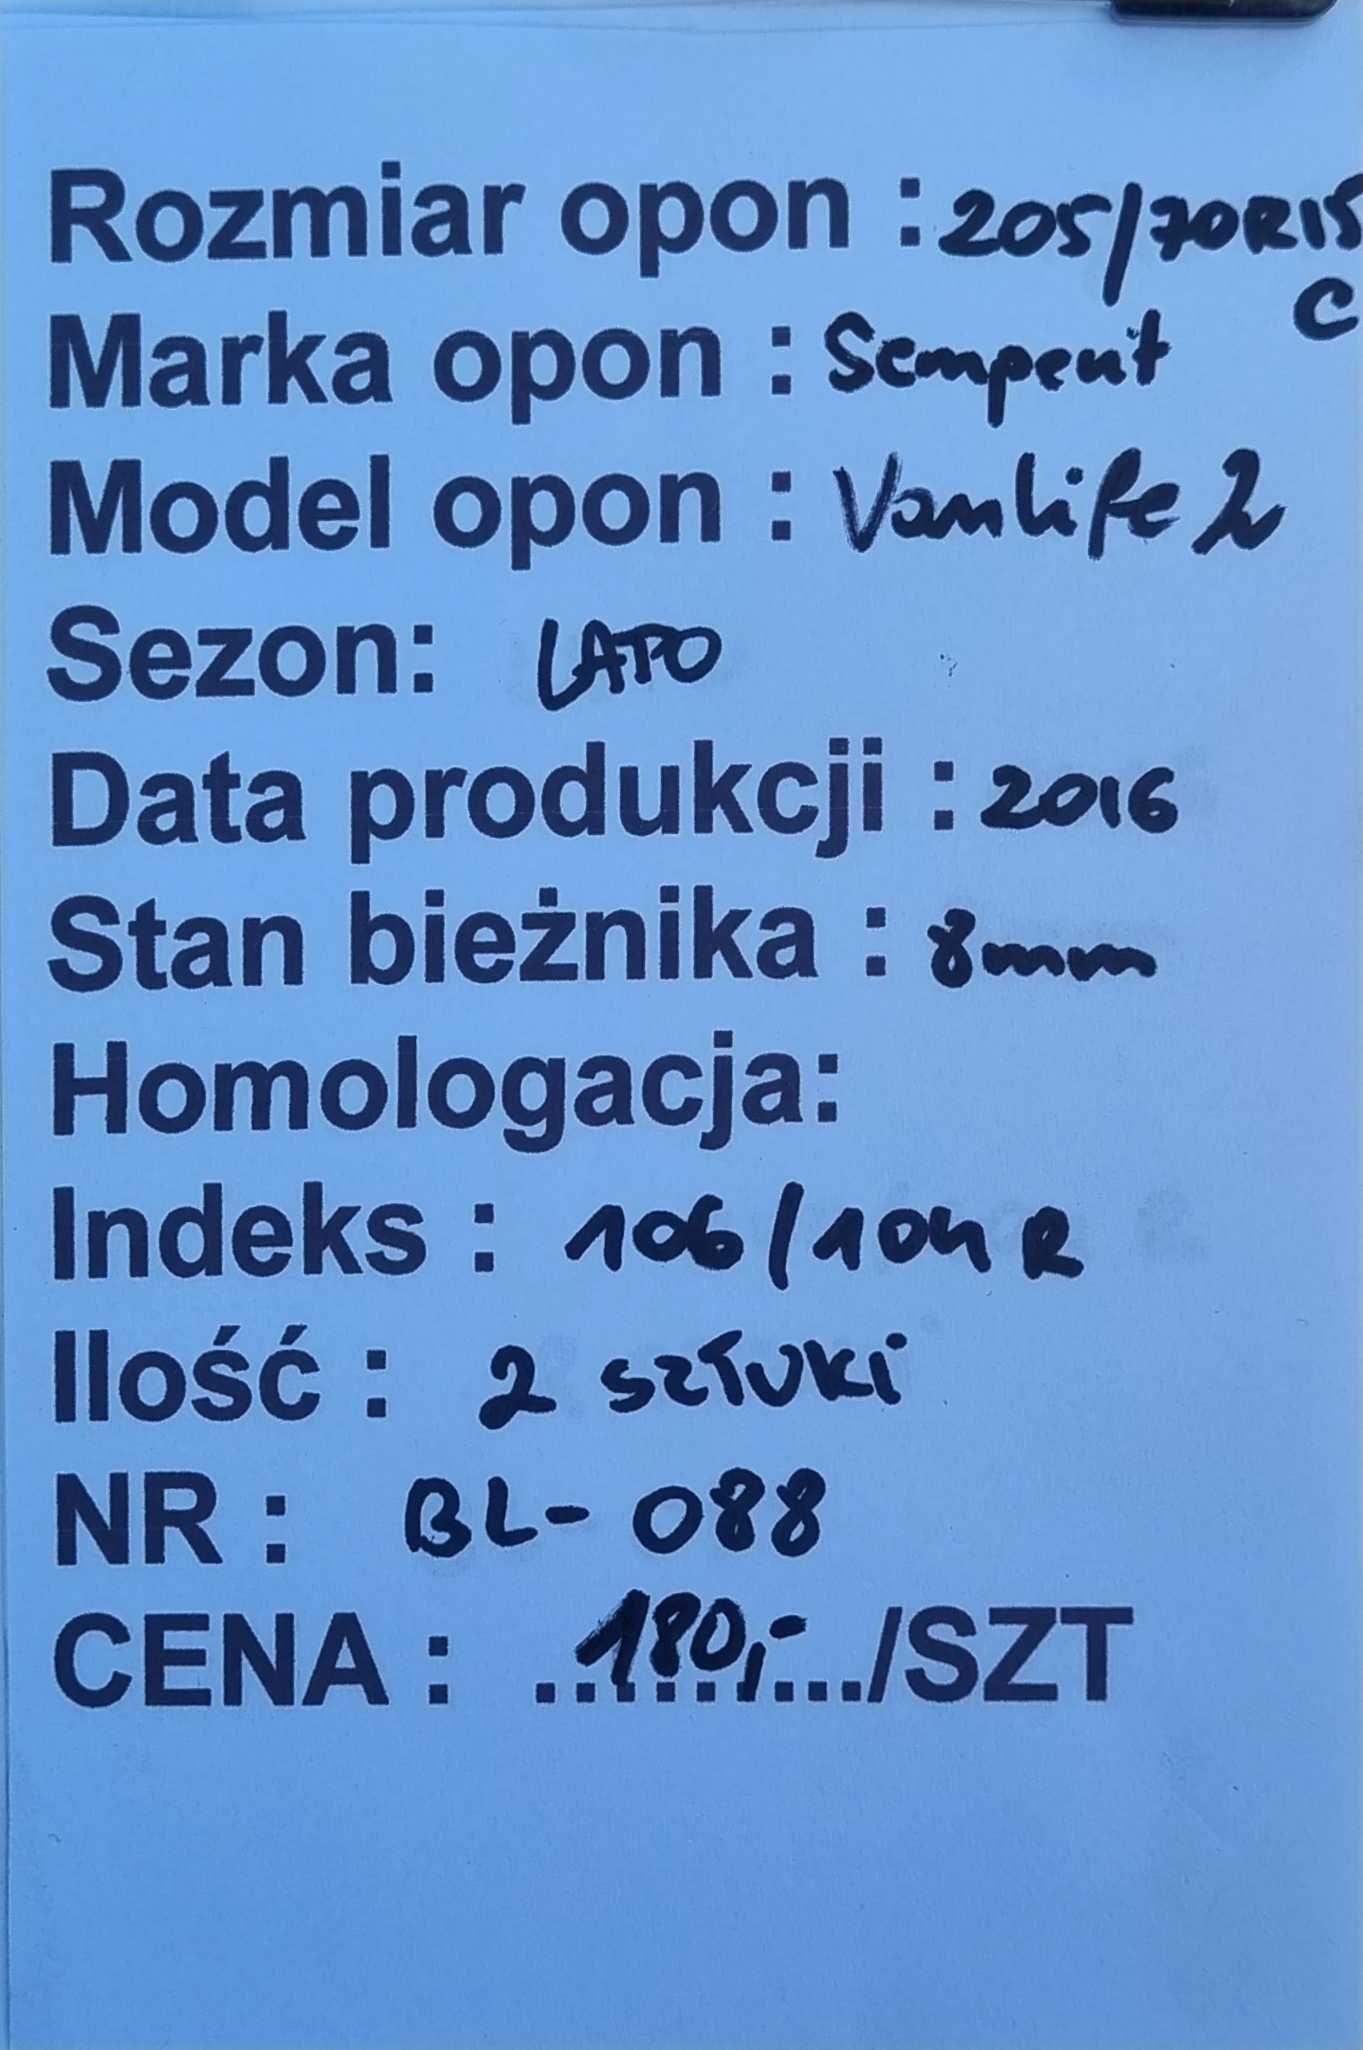 Rozmiar opon : 205/70R15
C
Marka opon : Semperit
Model opon : VanLife 2
Sezon: LATO
Data produkcji : 2016
Stan bieżnika : 8mm
Homologacja:
Indeks : 106/104 R
Ilość : 2 sztuki
NR : BL-088
CENA : ..180,-.../SZT